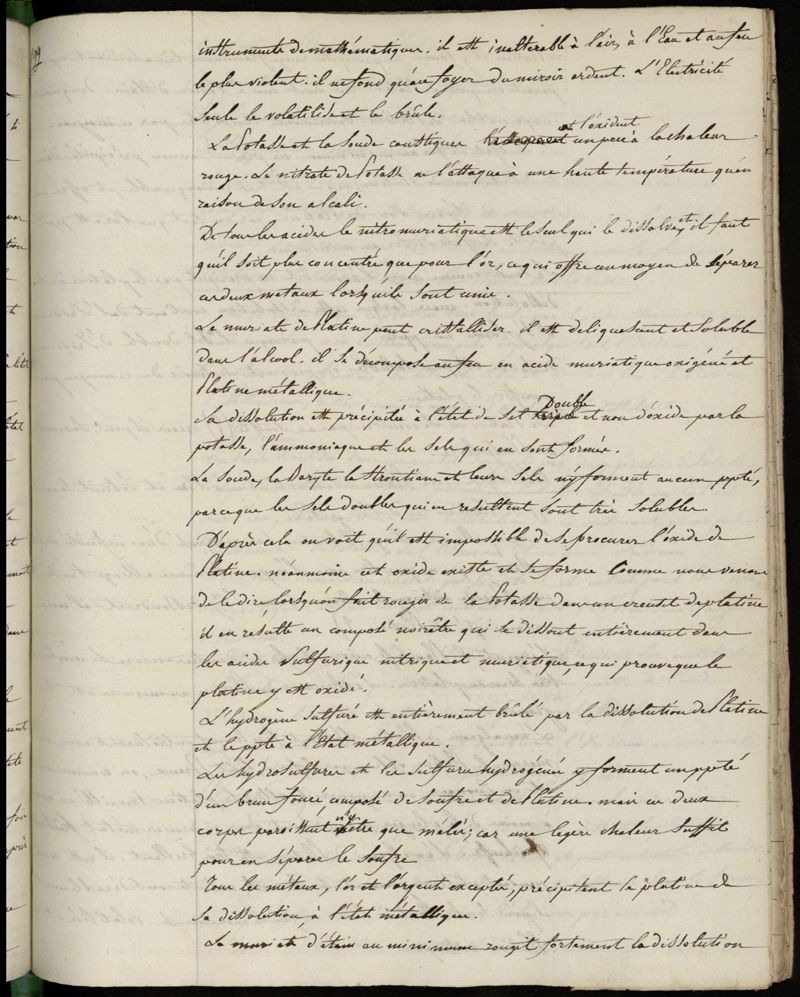 instruments de mathématiques. il est inaltérable à l'air, à l'Eau et au feu
le plus violent. il ne fond qu'au foyer du miroir ardent. L'Electricité
seule le volatilise et le brûle.
La Potasse et la Soude caustiques et l'oxident un peu à la chaleur
rouge. Le nitrate de Potasse ne l'attaque à une haute température qu'en
raison de son alcali.
De tous les acides le nitro muriatique est le seul qui le dissolve, et il faut
qu'il soit plus concentré que pour l'or, ce qui offre un moyen de séparer
ces deux métaux lorsqu'ils sont unis.
Le muriate de Platine peut cristalliser. il est deliquescent et soluble
dans l'alcool. il se décompose au feu en acide muriatique oxigéné et
Platine métallique.
Sa dissolution est précipitée à l'état de sel Double et non d'oxide par la
potasse, l'ammoniaque et les sels qui en sont formés.
La Soude, la Baryte la Strontiane et leurs sels n'y forment aucun ppté,
parceque les sels doubles qui en resultent sont très solubles.
D'après cela on voit qu'il est impossible de se procurer l'oxide de
Platine. néanmoins cet oxide existe et se forme comme nous venons
de le dire lorsqu'on fait rougir de la Potasse dans un creuset de platine
il en résulte un composé noirâtre qui se dissout entièrement dans
les acides sulfurique nitrique et muriatique, ce qui prouve que le
platine y est oxidé.
L'hydrogène sulfuré est entièrement brûlé par la dissolution de Platine
et le ppte à l'Etat métallique.
Les hydrosulfures et les sulfures hydrogénés y forment un ppté
d'un brun foncé, composé de soufre et de Platine. mais ces deux
corps paroissent n'y être que mêlés; car une legère chaleur suffit
pour en séparer le soufre
Tous les métaux, l'or et l'argent exceptés, précipitent le platine de
sa dissolution à l'état métallique.
Le muriate d'étain au minimum rougit fortement la dissolution